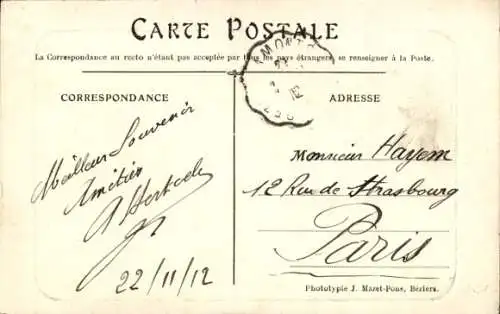 CARTE POSTALE
La Correspondance au recto n'étant pas acceptée par tous les pays étrangers, se renseigner à la Poste.
CORRESPONDANCE
Meilleur Souvenir
Amitiés
A
22/11/12
ADRESSE
Monsieur Hayem
12 Rue de Strasbourg
Paris
Phototypie J. Maret-Pons, Béziers.